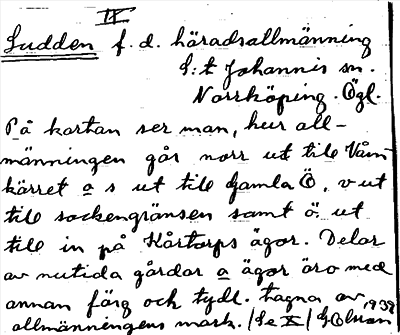 IV
Sudden f. d. häradsallmänning
S:t Johannis sn.
Norrköping. Ögl.
På kartan ser man, hur all-
männingen går norr ut till Vårn-
kärret o s ut till Gamla Ö, v ut
till sockengränsen samt ö. ut
till in på Kårtorps ägor. Delar
av nutida gårdar o ägor äro med
annan färg och tydl. tagna av
allmänningens mark. /Se X/ G Olson 1932